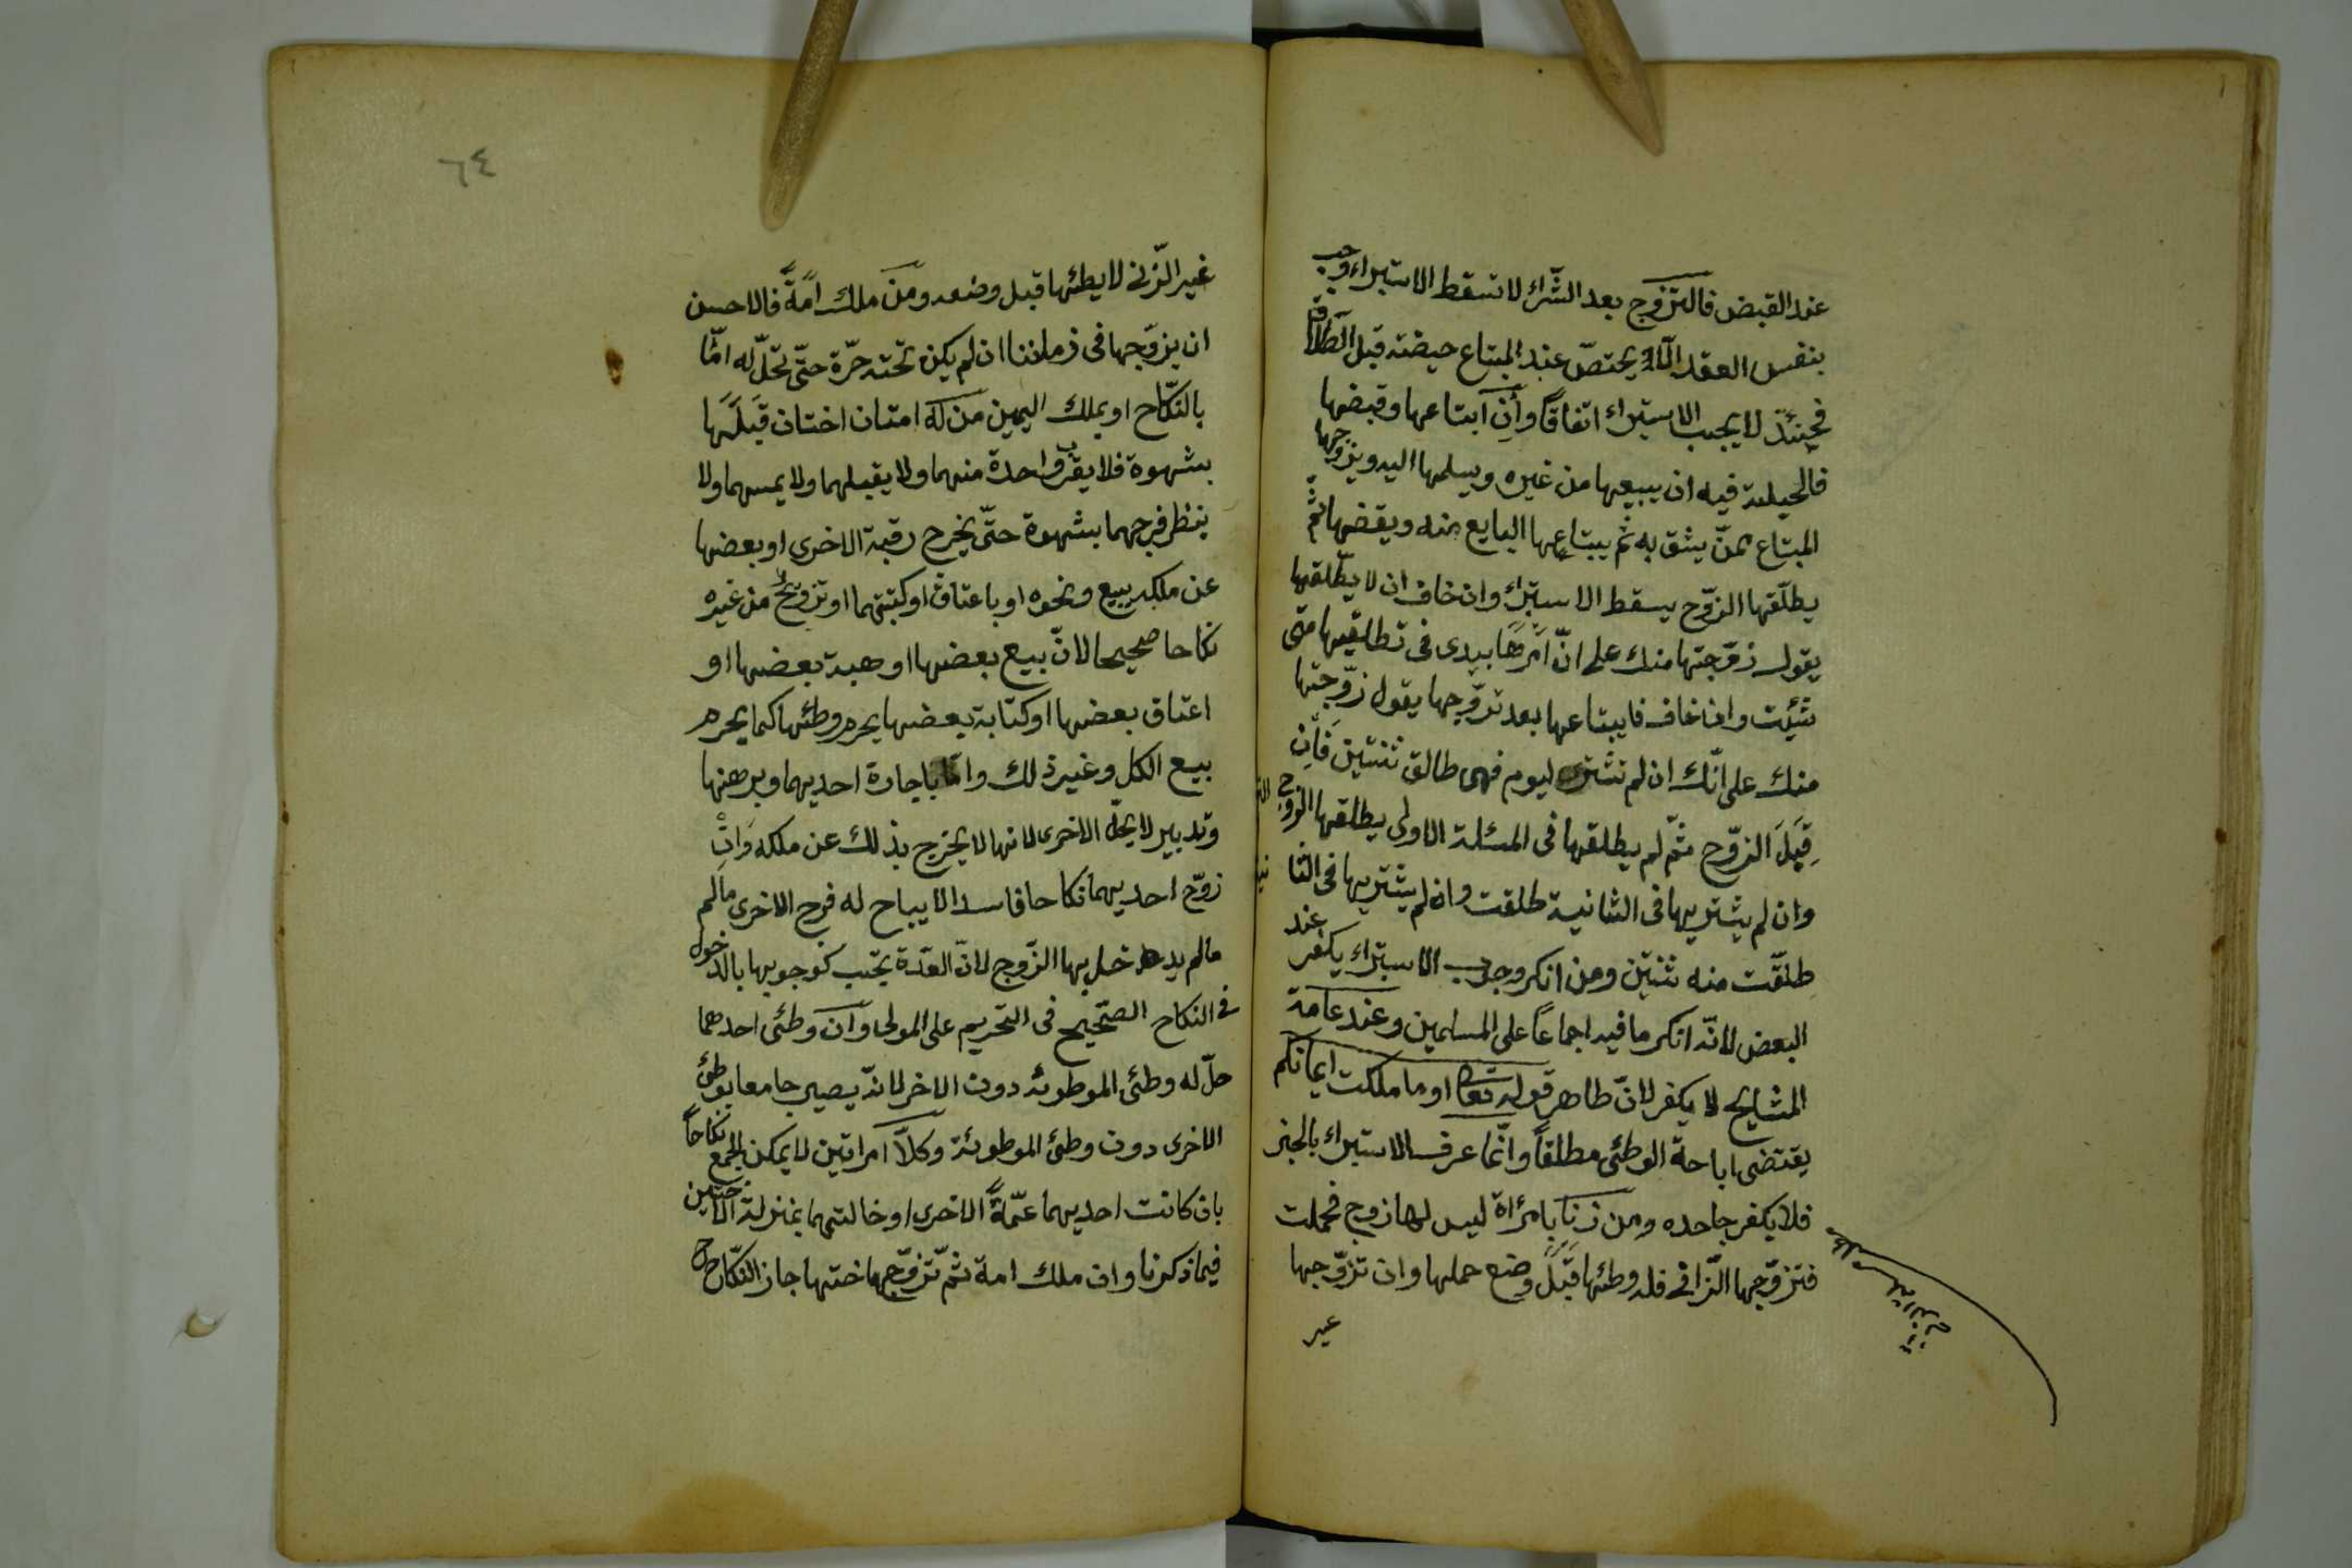 عند القبض فالتزوج بعد الشراء لا تسقط الاستبراء وجب
بنفس العقد يختص عند المبتاع حيضته قبل الطلاق
فحينئذ لا يجب الاستبراء اتفاقاً وان ابتاعها وقبضها
فالحيلة فيه ان يبيعها من غيره ويسلمها اليه ويزوجها
المبتاع ممن يثق به ثم يبتاعها البايع منه ويقضها ثم
يطلقها الزوج يسقط الاستبراء وان خاف ان لا يطلقها
يقول زوجتها منك على انّ امرها بيدى فى تطليقها متى
شئت وان خاف فايبتاعها بعد تزوجها يقول زوجتها
منك على انك ان لم تشتر اليوم فهى طالق ثنتين فان
قبل الزوج ثم لم يطلقها فى المسئلة الاولى يطلقها الزوج
وان لم يشتريها فى الثانية طلقت وان لم يشتريها فى الثا نية
طلقت منه ثنتين ومن انكر وجوب الاستبراء يكفر عند
البعض لانه انكر ما فيه اجماعاً على المسلمين وعند عامة
المشايخ لا يكفر لان ظاهر قوله تعا او ما ملكت ايمانكم
يقتضى اباحة الوطئ مطلقاً وانما عرف الاستبراء بالخبر
فلا يكفر جاحده ومن زنا بامرأة ليس لها زوج فحملت
فتزوجها الزانى فله وطئها قبل وضع حملها وان تزوجها
غير
٦٤
غير الزنى لا يطئها قبل وضعه ومن ملك امة فالاحسن
ان يزوجها فى زماننا ان لم يكن تحته حرة حتى تحل له امّا
بالنكاح او بملك اليمين من له امتان اختان قبلها
بشهوة فلا يقرب واحدة منهما ولا يقبلهما ولا يمسهما ولا
ينظر فرجهما بشهوة حتى يخرج رقبة الاخرى او بعضها
عن ملكه ببيع ونحوه او باعتاق او كتبتهما او تزويج من غيره
نكاحا صحيحا لان بيع بعضها او هبة بعضها او
اعتاق بعضها او كتابة بعضها يحرم وطئها كما يحرم
بيع الكل وغير ذلك واما باجارة احديهما وبرهنها
وتدبير لا يحل الاخرى لانها لا يخرج بذلك عن ملكه وان
زوج احديهما نكاحا فاسدا لا يباح له فرج الاخرى مالم
مالم يدخل بها الزوج لان العدة يجب كوجوبها بالدخول
فى النكاح الصحيح فى التحريم على المولى وان وطئ احدهما
حل له وطئ الموطوئة دون الاخر لانه يصير جامعا بوطئ
الاخرى دون وطئ الموطوئة وكلّ امراتين لا يمكن الجمع نكاحاً
بان كانت احديهما عمّة الاخرى او خالتهما بمنزلة الاختين
فيما ذكرنا وان ملك امة ثم تزوج اختها جاز النكاح